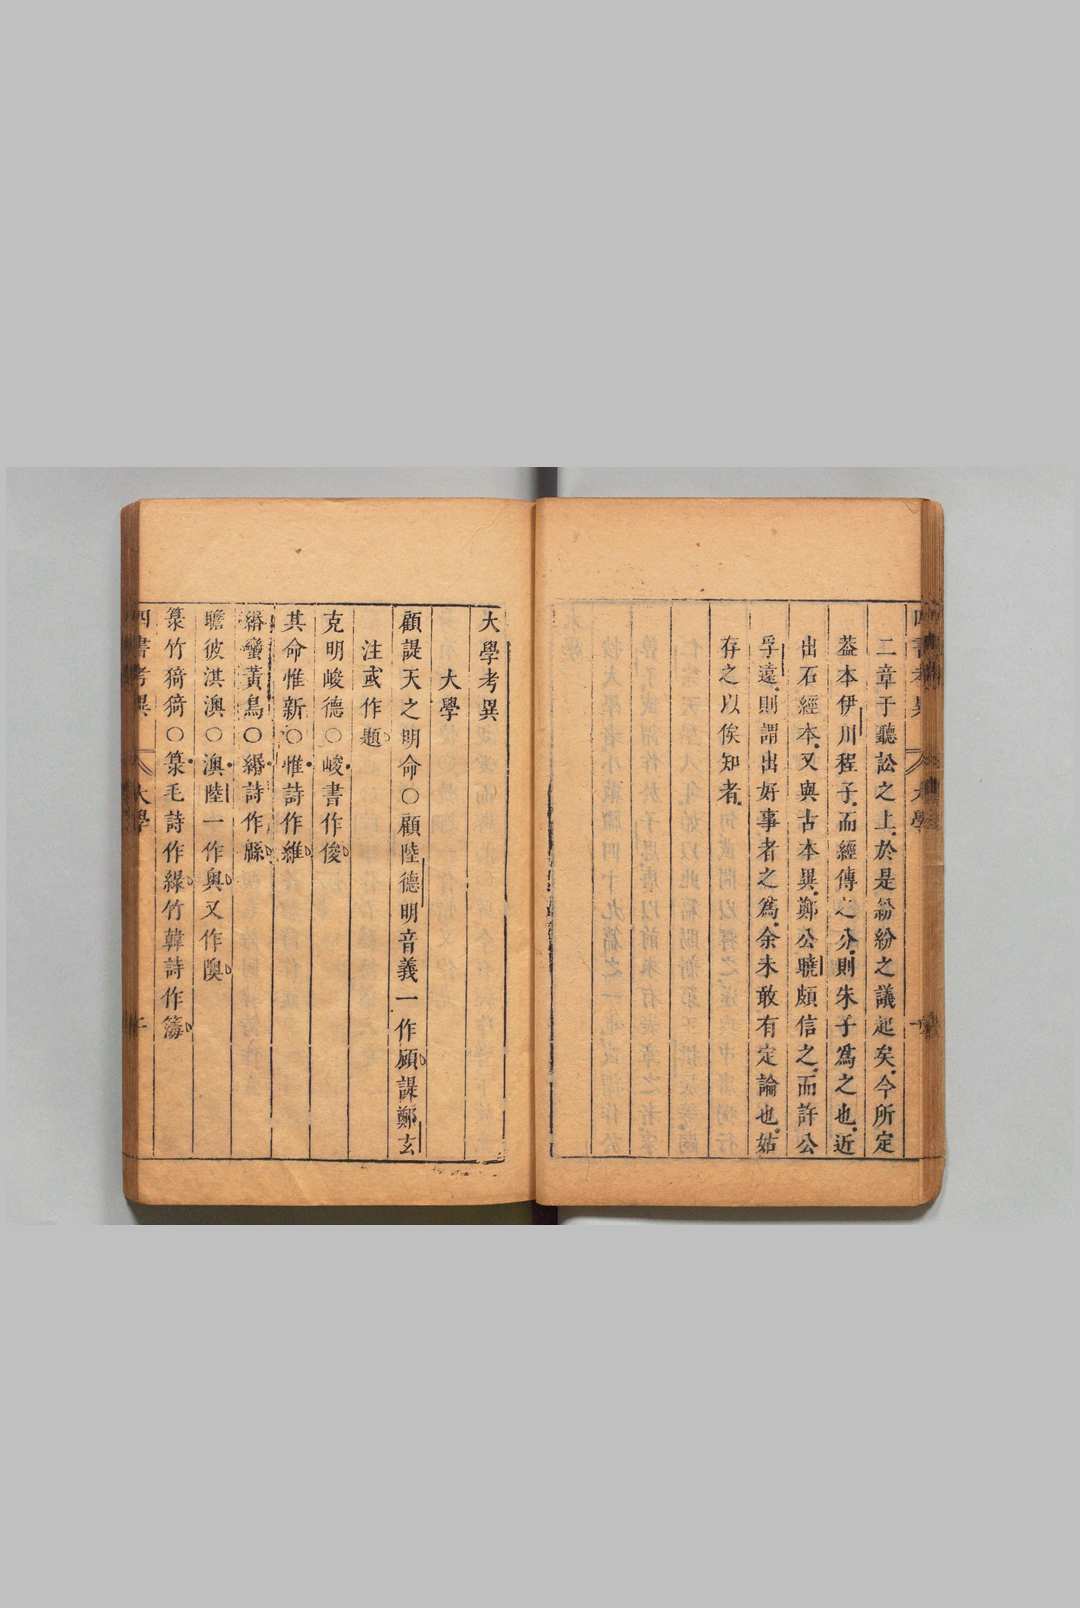 二章于聽訟之上於是紛紛之議起矣今所定
葢本伊川程子而經傳之分則朱子爲之也近
出石經本又與古本異鄭公曉頗信之而許公
孚遠則謂出好事者之爲余未敢有定論也姑
存之以俟知者
大學考異
大學
顧諟天之明命○顧陸德明音義一作頋諟鄭玄
注或作題
克明峻德○峻書作俊
其命惟新○惟詩作維
緡蠻黃鳥○緡詩作緜
瞻彼淇澳○澳陸一作奧又作隩
菉竹猗猗○菉毛詩作綠竹韓詩作薵
四書考異
大學